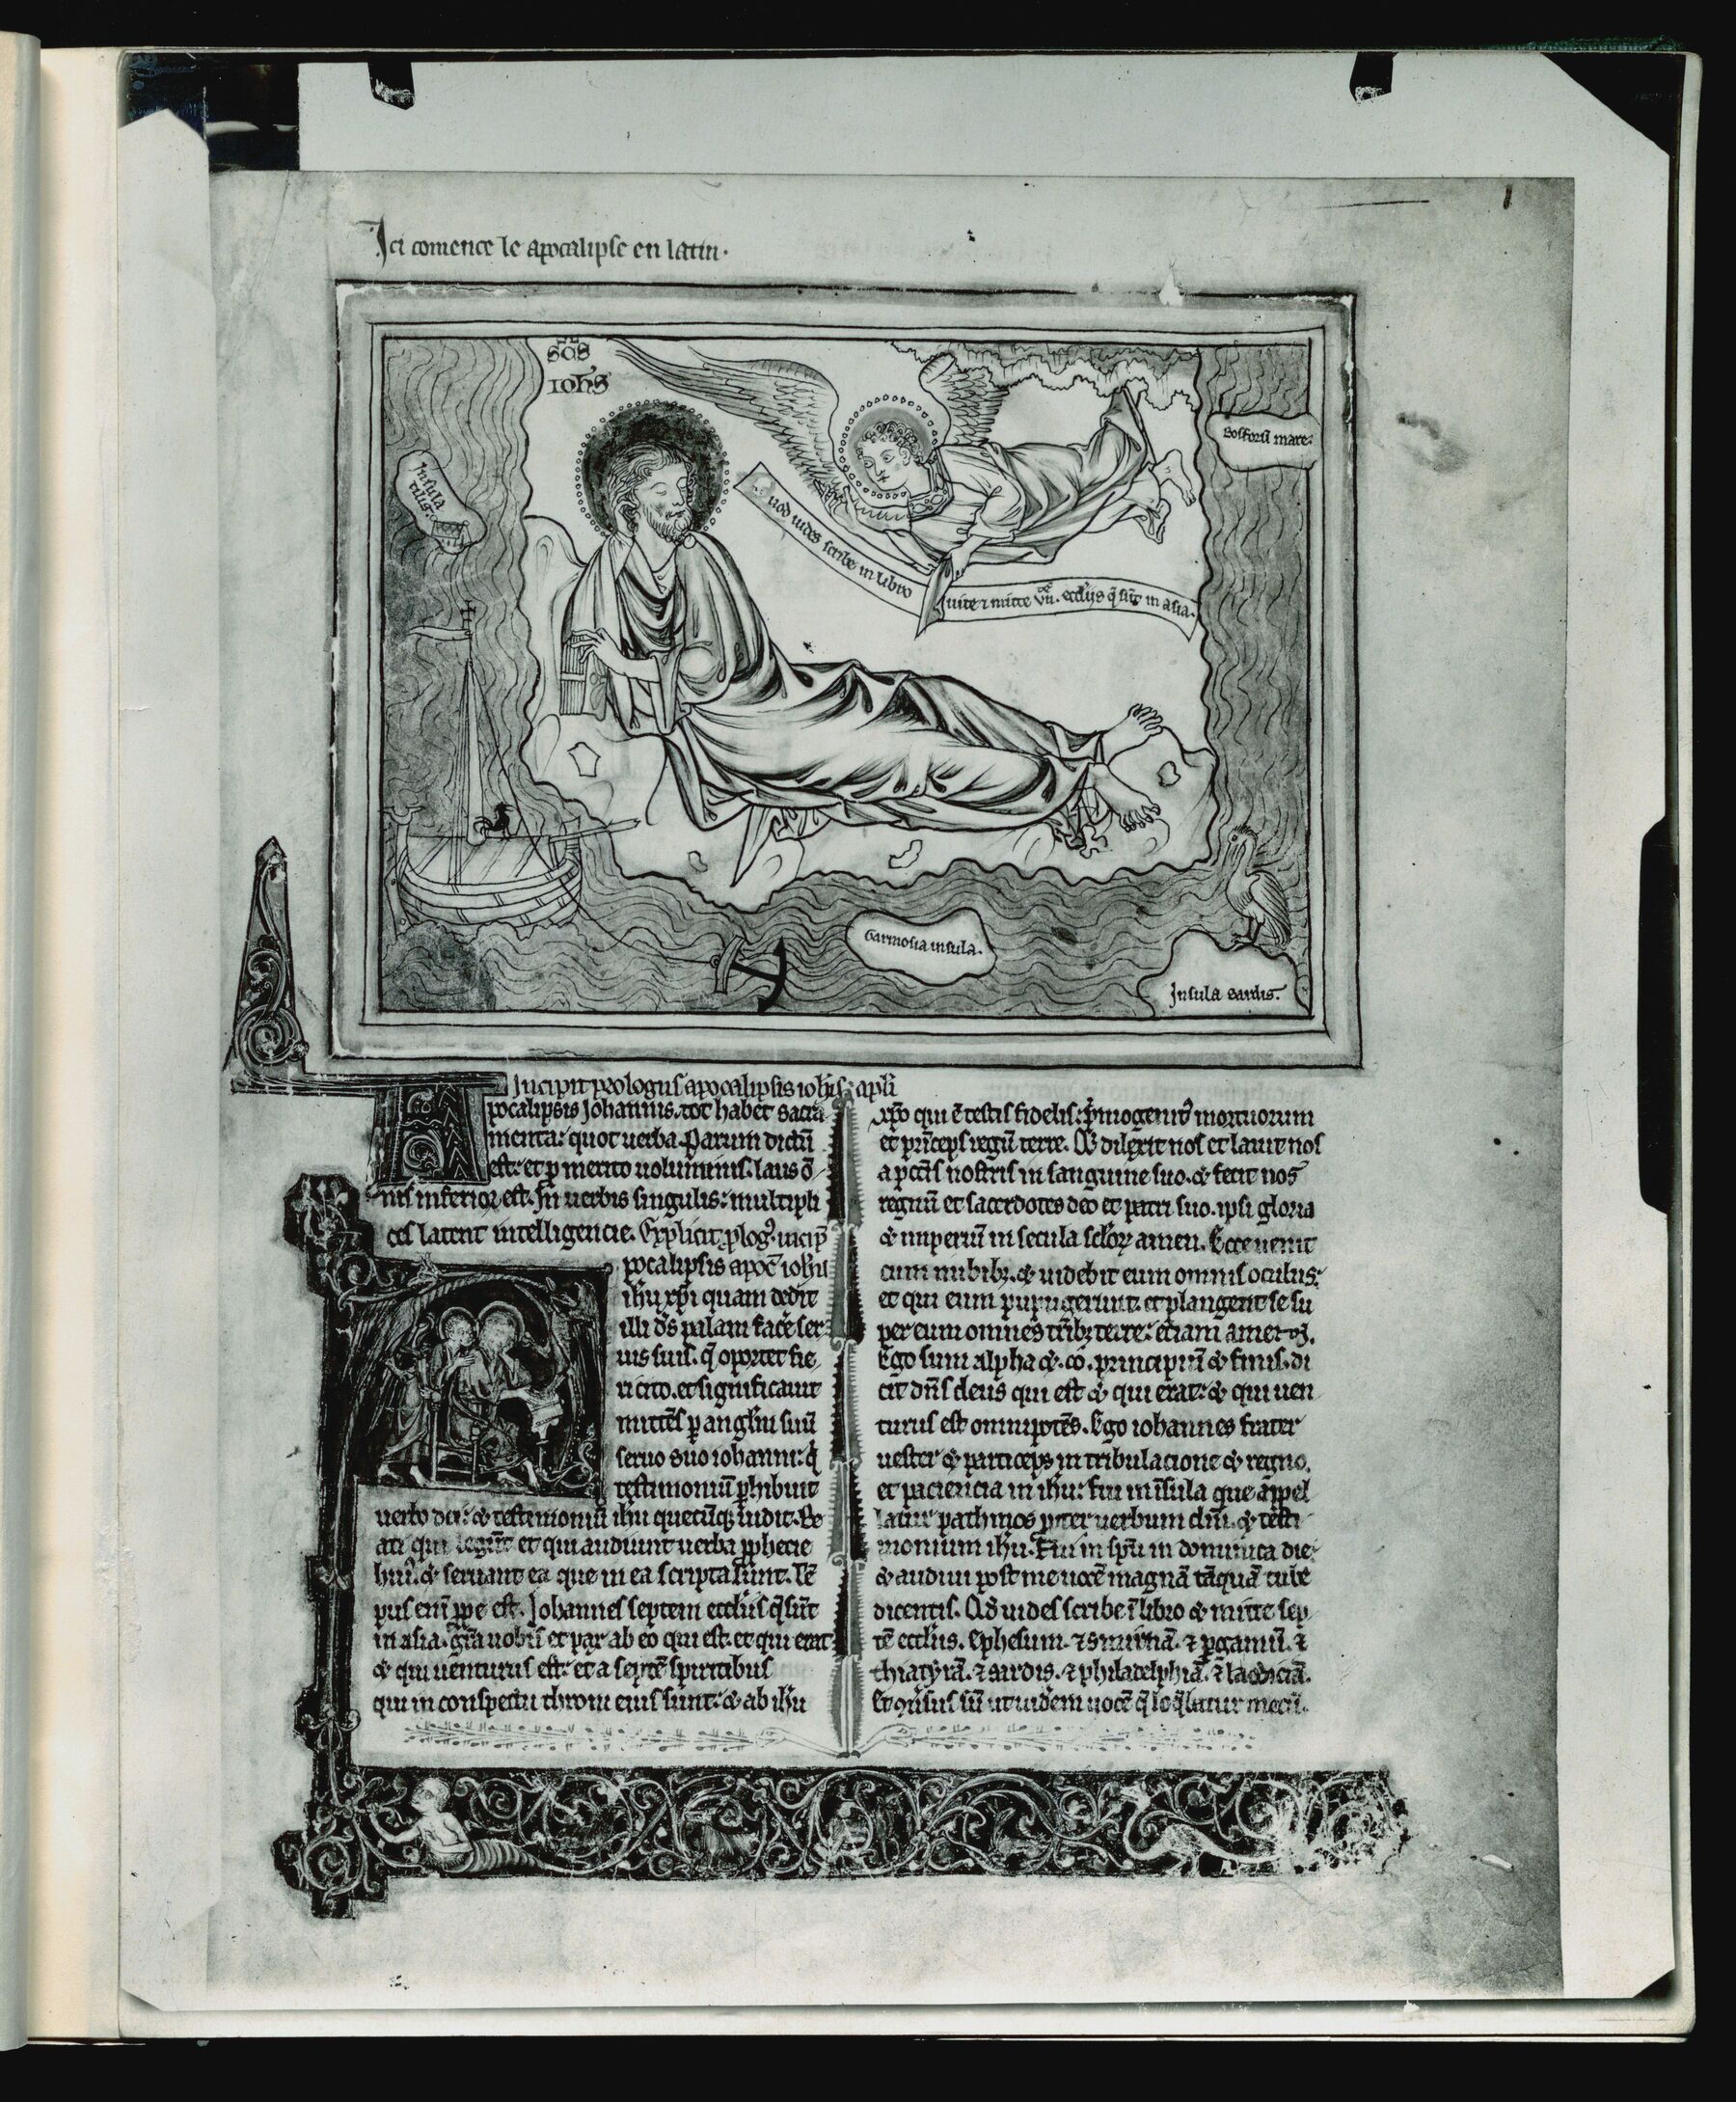 Ici comence le apocalipse en latin.
scs
ioħs
Insula
tilis.
Bosforū mare.
uod uides scribe in libro
uite ⁊ mitte vii. eccl'ijs q̄ sūt in asia.
Garmosia insula.
Insula sardis.
Incipit prologus apocalipsis ioħis apl'i
Apocalipsis Johannis. tot habet sacra
menta: quot uerba. Parum dictū
est: et p̄ merito uoluminis. laus ō
nis inferior est. In uerbis singulis: multipli
ces latent intelligencie. Explicit p̄log'. incip̄
Apocalipsis
ihū xp̄i quam dedit
illi d̄s palam facē ser
uis suis. q̄ oportet fie
ri cito. et significauit
mittēs p̱ angl'm suū
seruo suo iohanni: q̇
testimoniū p̱hibuit
uerbo dei: & testimoniū ihū quecūq; uidit. Be
ati qui legūt et qui audiunt uerba p̱phecie
hui': & seruant ea que in ea scripta sunt. Tē
pus enī p̱pe est. Johannes septem eccl'iis q̄ sūt
in asia. gr̄a uobis et pax ab eo qui est. et qui erat
& qui uenturus est: et a septē spiritibus
qui in conspectu throni eius sunt: & ab ihū
xp̄o qui ē testis fidelis: p̄mogenit' mortuorum
et p̄nceps regū terre. Q̇ dilexit nos et lauit nos
a pctīs nostris in sanguine suo. & fecit nos
regnū et sacerdotes deo et patri suo. ipsi gloria
& imperiū in secula sclōꝝ amen. Ecce uenit
cum nubibꝫ. & uidebit eum omnis oculus:
et qui eum pupugerunt. et plangent se su
per eum omnes tribꝫ terre: etiam amen.
Ego sum alpha &. ω. principiū & finis. di
cit dn̄s deus qui est & qui erat: & qui uen
turus est omnipotēs. Ego iohannes frater
uester & particeps in tribulacione & regno.
et paciencia in ihū: fui in īsula que appel
latur pathmos p̱pter uerbum dn̄i. & testi
monium ihū. Fui in sp̄u in dominica die:
& audiui post me uocē magnā tāquā tube
dicentis. Q̇d uides scribe ī libro & mitte sep
tē eccl'iis. Ephesum. ⁊ smirnā. ⁊ p̱gamū. ⁊
thiatyrā. ⁊ sardis. ⁊ philadelphiā. ⁊ laodiciā.
Et ꝯuersus sū ut uidem uocē q̄ loq̄batur mecū.